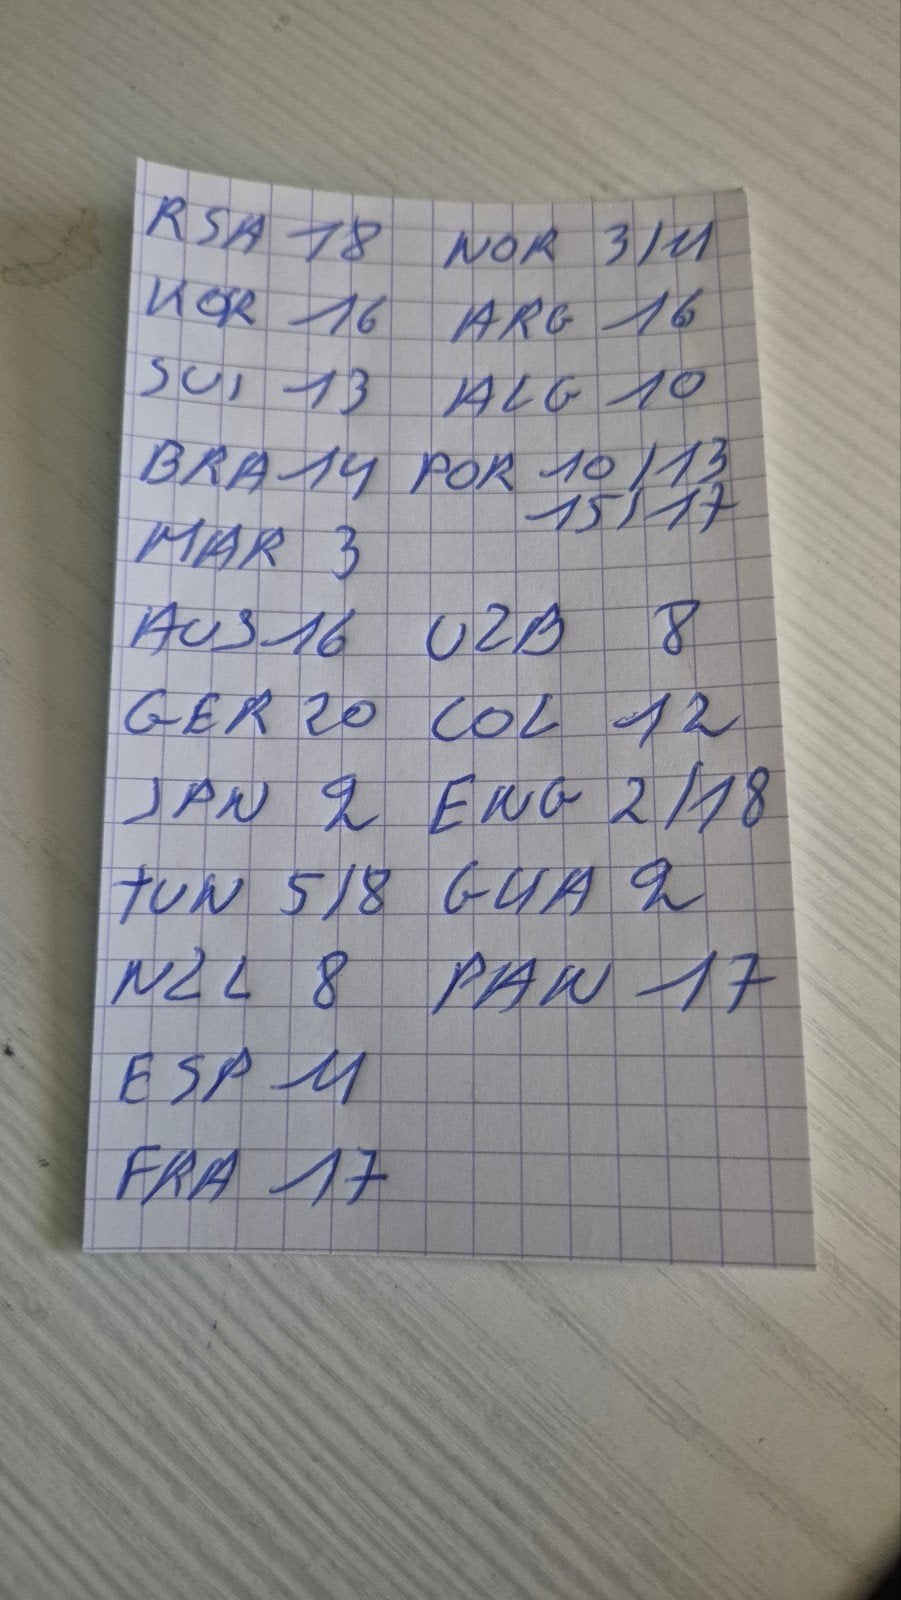 RSA 18 NOR 3/11
KOR 16 ARG 16
SUI 13 ALG 10
BRA 14 POR 10/13
15/17
MAR 3
AUS 16 UZB 8
GER 20 COL 12
JPN 2 ENG 2/18
TUN 5/8 GHA 2
NZL 8 PAN 17
ESP 11
FRA 17